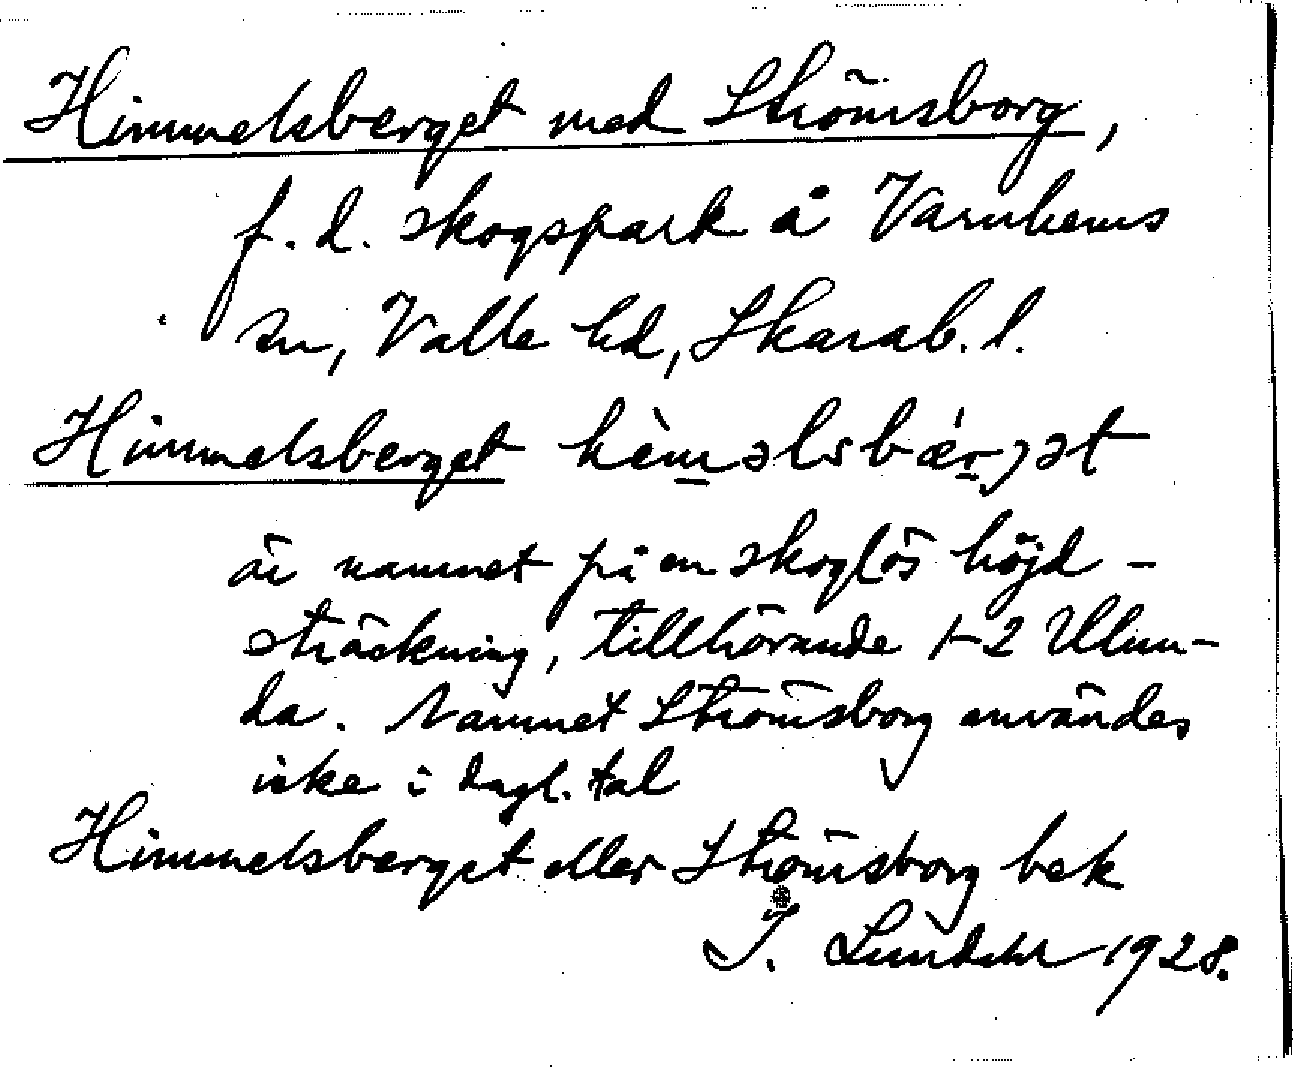 Himmelsberget med Strömsborg,
f. d. skogspark å Varnhems
sn, Valle hd, Skarab. l.
Himmelsberget hèm̲əlsbǽr̲jət
är namnet på en skoglös höjd-
sträckning, tillhörande 1-2 Ulun-
da. Namnet Strömsborg användes
icke i dagl. tal
Himmelsberget eller Strömsborg bek
J. Lundahl 1928.